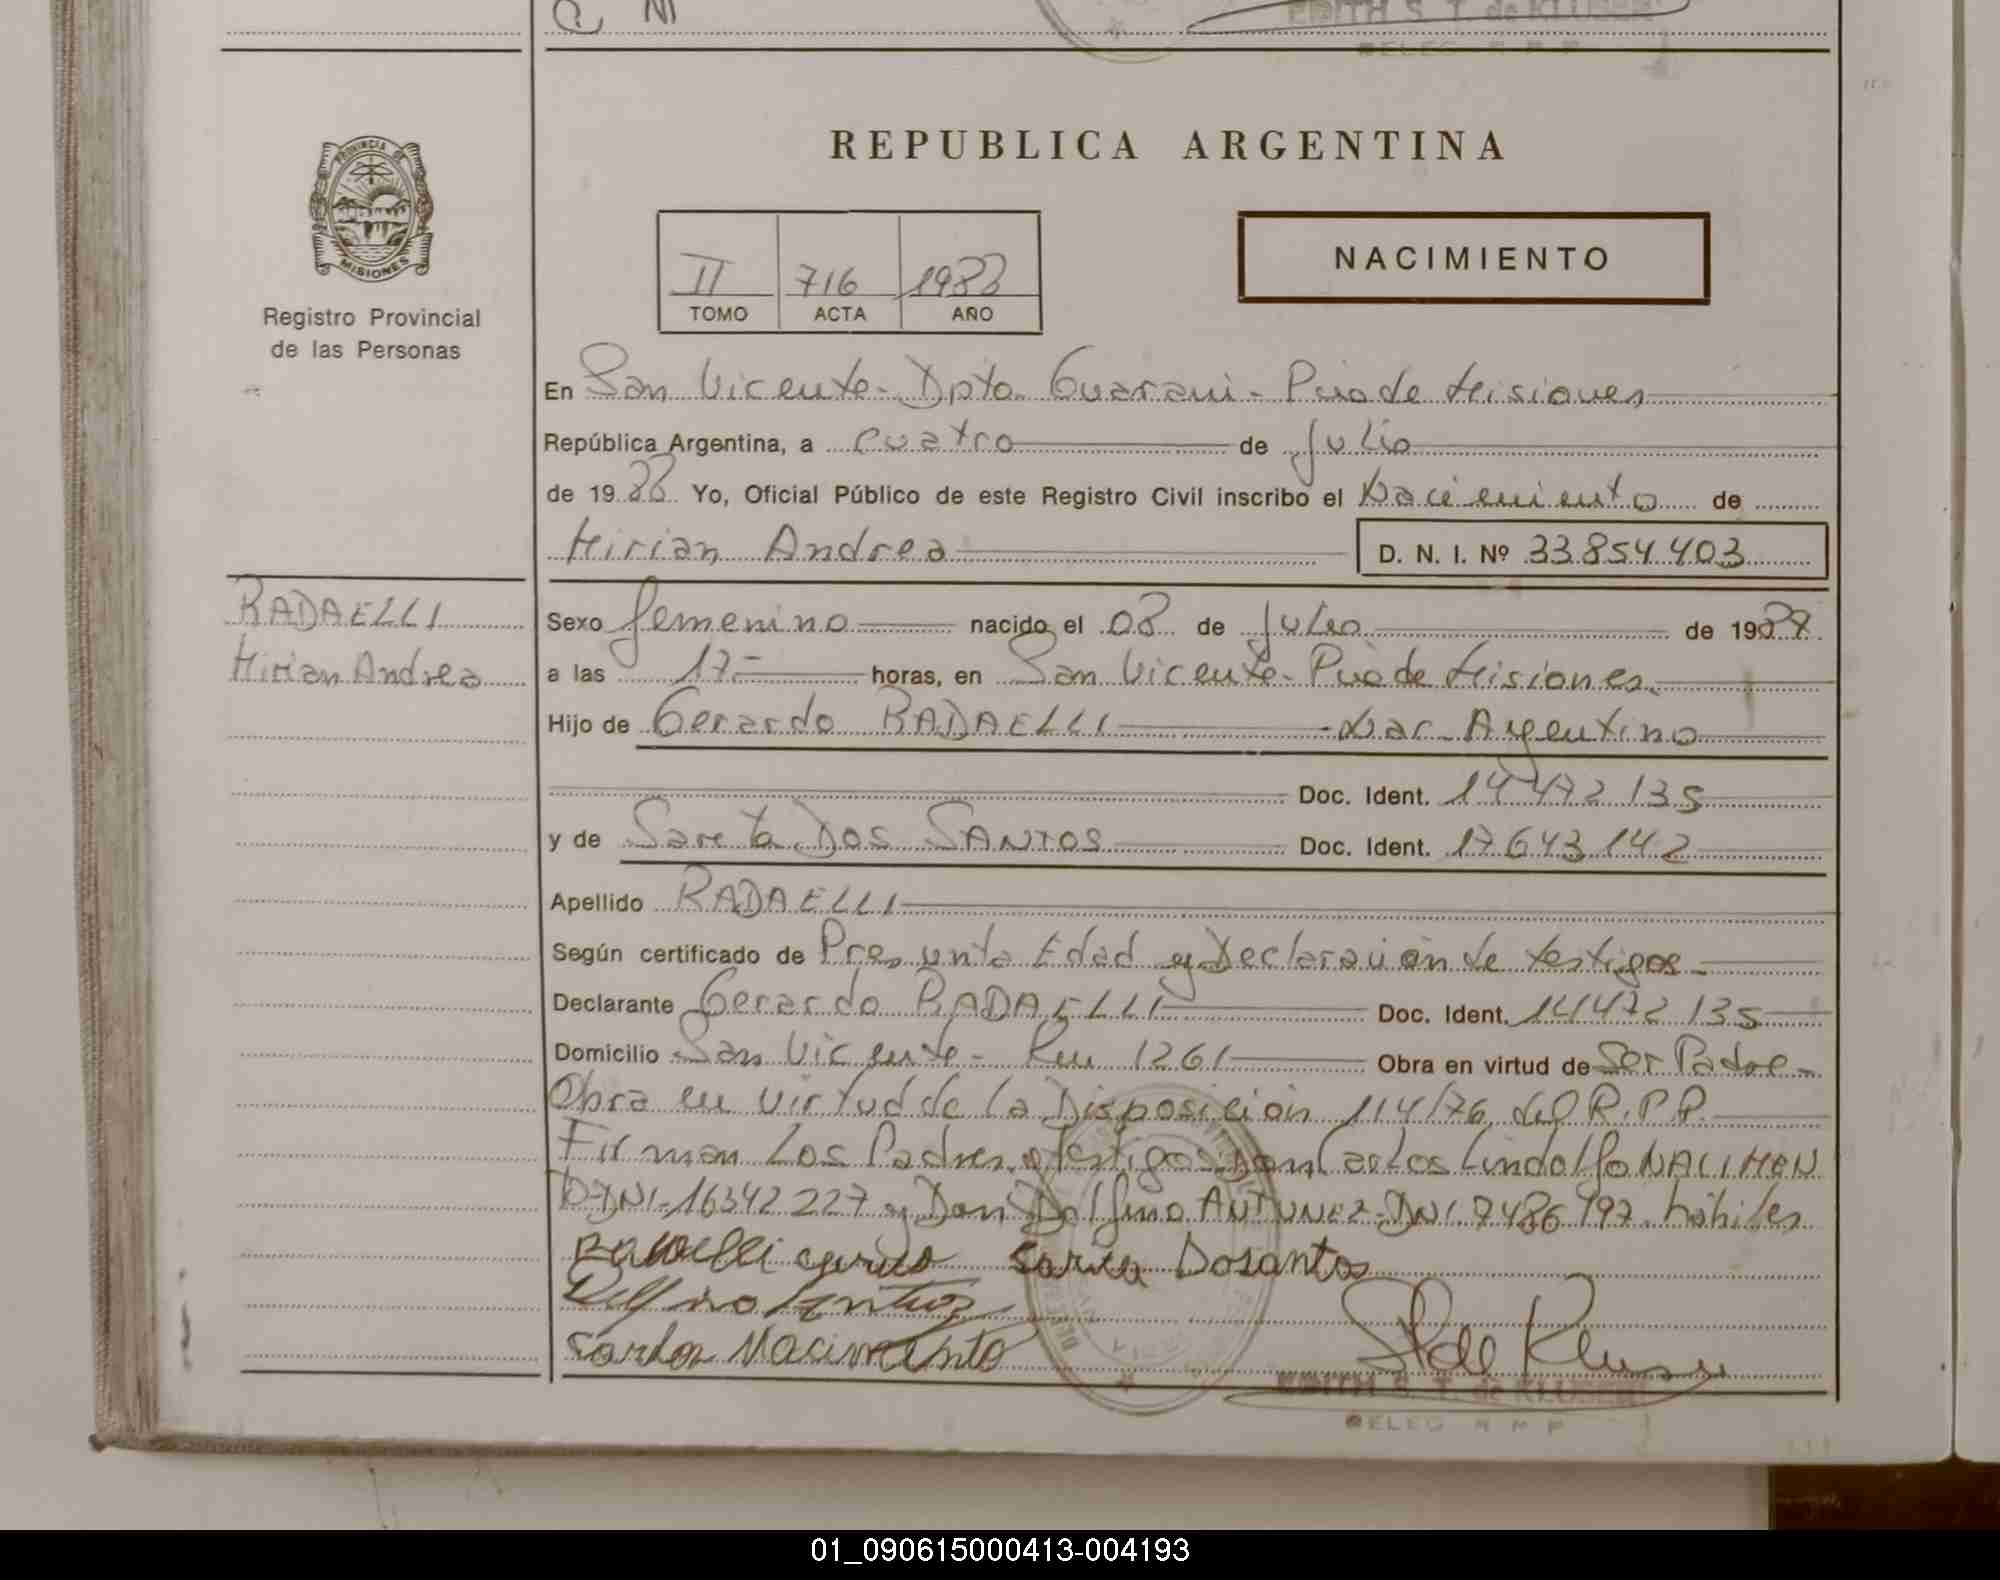 EDITH S. T. de KLUSENER
DELEG R P P
REPUBLICA ARGENTINA
PROVINCIA DE
MISIONES
NACIMIENTO
II 716 1988
TOMO ACTA AÑO
Registro Provincial
de las Personas
En San Vicente - Dpto. Guarani - Pcia de Misiones
República Argentina, a cuatro de Julio
de 1988 Yo, Oficial Público de este Registro Civil inscribo el Nacimiento de
Mirian Andrea D. N. I. Nº 33.854.403
RADAELLI
Mirian Andrea
Sexo femenino nacido el 08 de Julio de 1987
a las 17- horas, en San Vicente - Pcia de Misiones.
Hijo de Gerardo RADAELLI - Nac. Argentino
Doc. Ident. 14 472 135
y de Sareta DOS SANTOS Doc. Ident. 17 643 142
Apellido RADAELLI
Según certificado de Presunta Edad y Declaración de testigos -
Declarante Gerardo RADAELLI Doc. Ident. 14 472 135
Domicilio San Vicente - Km 1261 Obra en virtud de Ser Padre -
Obra en virtud de la Disposición 114/76 del R.P.P.
Firman Los Padres y testigos Don Carlos Lindolfo NACIMEN
TO DNI - 16342 227 y Don Delfino ANTUNEZ - DNI 7486 997. hábiles
Radaelli Sarita Dosantos
Delfino Antunez
Carlos Nacimento
S T de Klusener
EDITH S. T. de KLUSENER
DELEG R P P
01_090615000413-004193